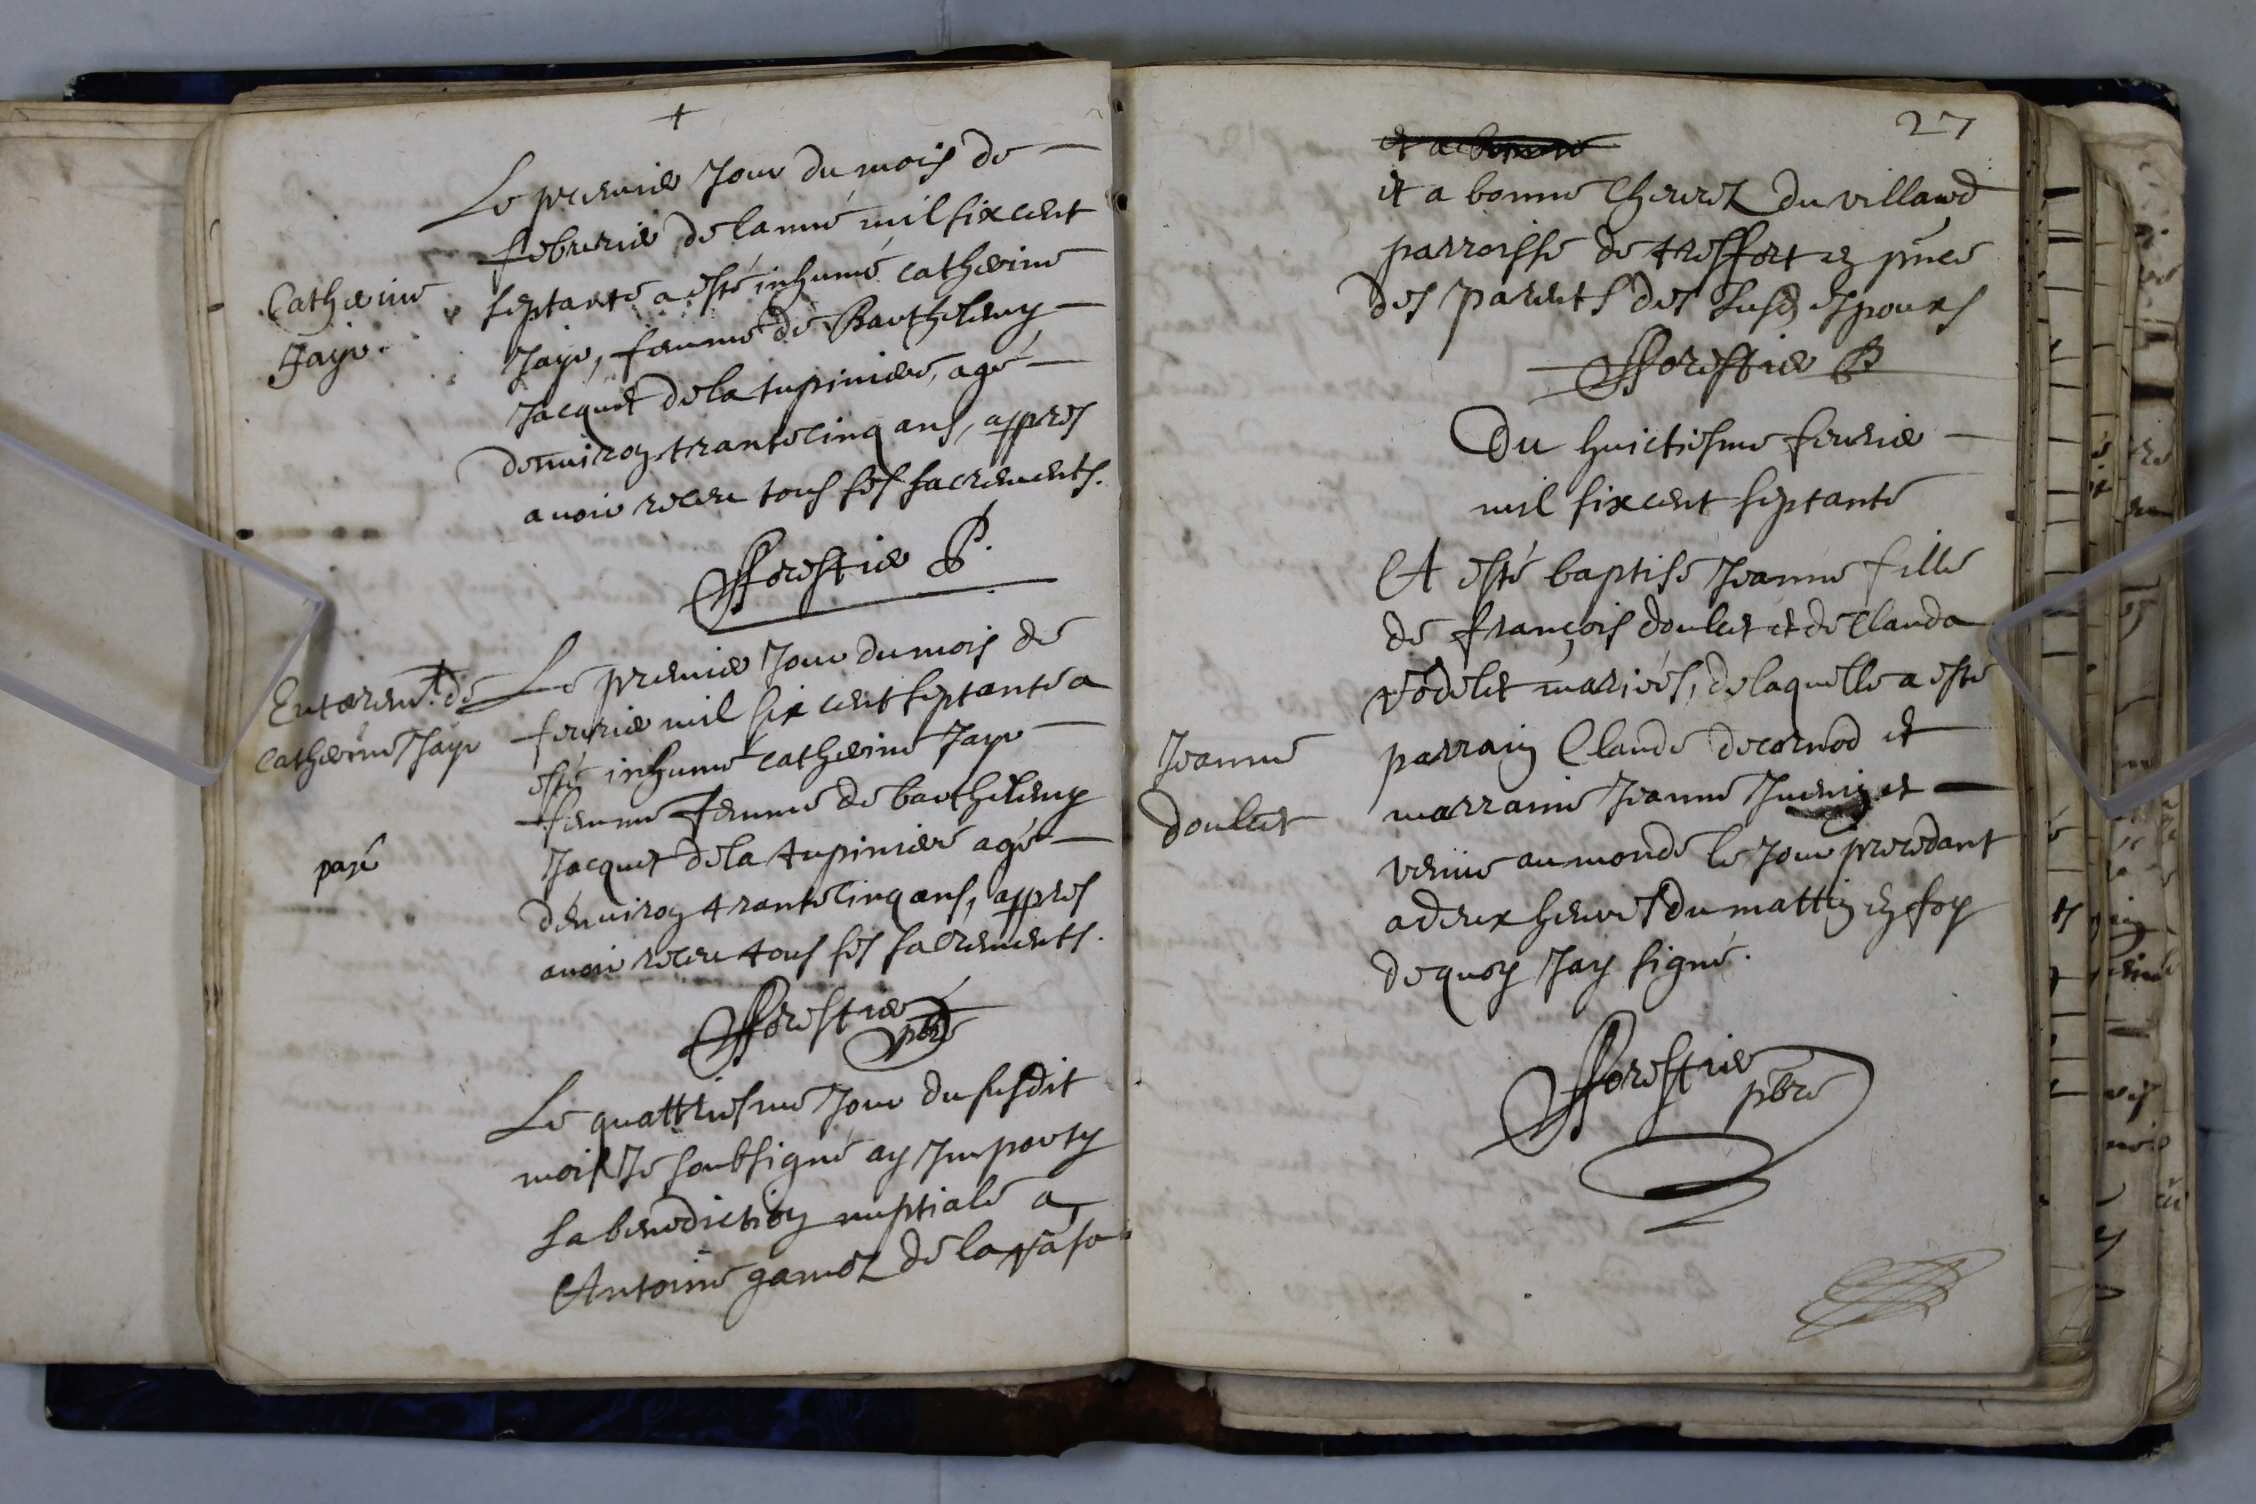 +
Le premier Jour du mois de
febvrier de lanné mil six cent
septante a esté inhumé catherine
Jayr, femme de Barthelemy
Jacquet de la tupiniere, agé
denviron trante cinq ans, appres
avoir receu tous ses sacrements.
fforestier P.
Catherine
Jayr.
Le premier Jour du mois de
fevrier mil six cent septante a
esté inhumé catherine Jayr
femme femme de barthelemy
Jacquet de la tupiniere agé
denviron trante cinq ans, appres
avoir receu tous ses sacrements.
fforestier
pbre
Enterem.t de
catherine Jayr
payé
Le quattriesme Jour du susdit
mois Je soubsigné ay Imparty
la benediction nuptiale a
Antoine de la
27
et a bonne du villard
parroisse de treffort en pnce
des parents des susd espoux
fforestier P
Du huictiesme fevrier
mil six cent septante
A esté baptise Jeanne fille
de françois doulcet et de Clauda
mariés, de laquelle a esté
parrain Claude decornod et
marraine Jeanne et
venue au monde le Jour precedant
a deux heures du mattin en foy
de quoy Jay signé.
fforestier
pbre
Jeanne
doulcet